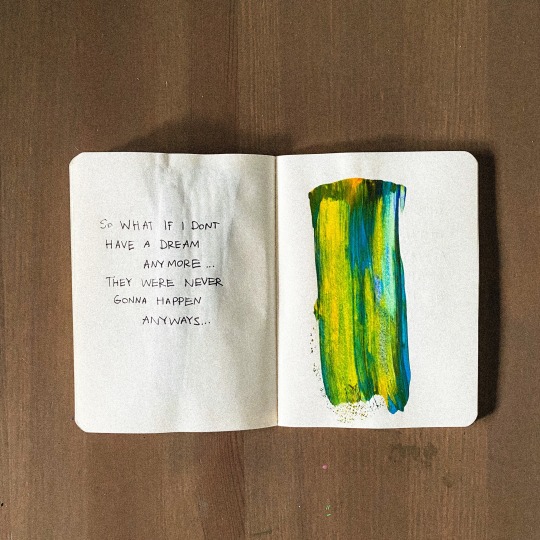 So WHAT IF I DONT
HAVE A DREAM
ANYMORE ...
THEY WERE NEVER
GONNA HAPPEN
ANYWAYS...